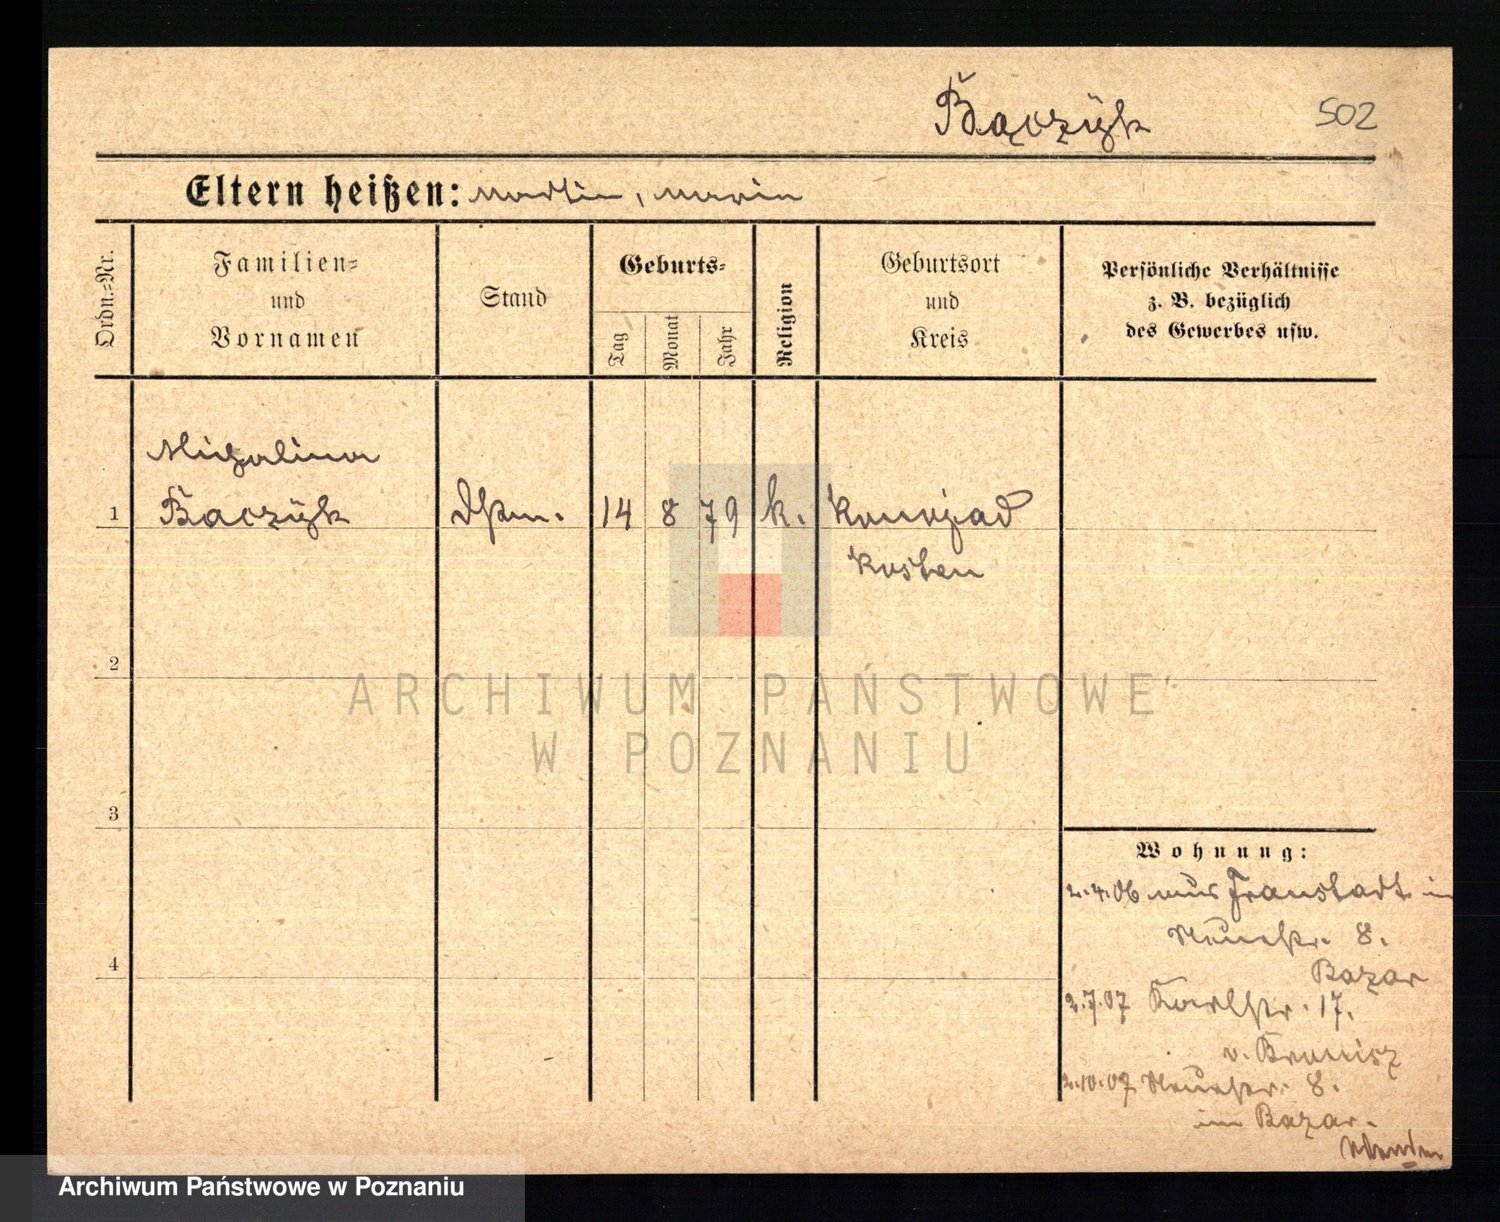 Bączÿk 502
Eltern heißen: Martin, Maria
Ordn.-Nr.
Familien-
und
Vornamen
Stand
Geburts-
Tag
Monat
Jahr
Religion
Geburtsort
und
Kreis
Persönliche Verhältnisse
z. B. bezüglich
des Gewerbes usw.
Michalina
1 Baczÿk 14 8 79 k.
Kosten
2
ARCHIWUM PAŃSTWOWE
W POZNANIU
3
Wohnung:
2.4.06 aus Fraustadt in
Neuestr. 8.
4
Bazar
2.7.07 Karlstr. 17.
v. Bronisz
2.10.07 Neuestr. 8.
im Bazar.
Archiwum Państwowe w Poznaniu